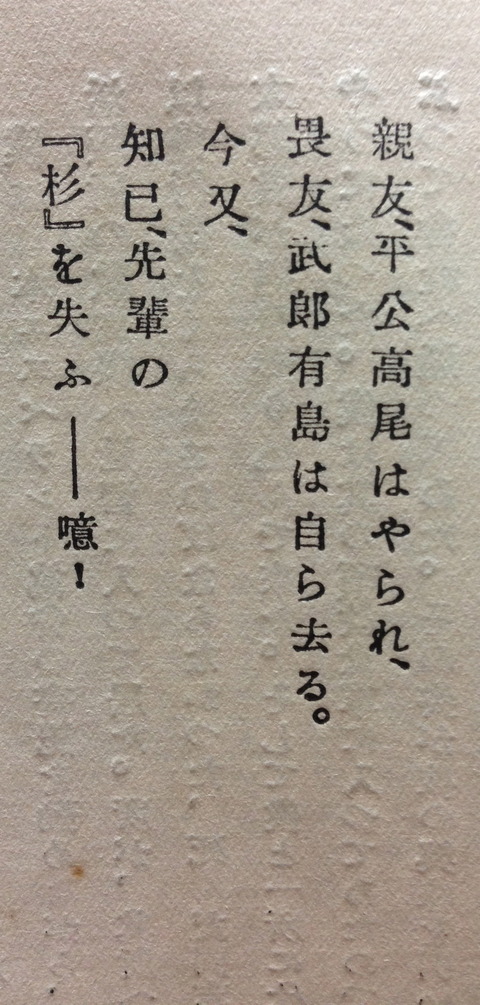 親友、平公高尾はやられ、
畏友、武郎有島は自ら去る。
今又、
知已、先輩の
『杉』を失ふ――噫！